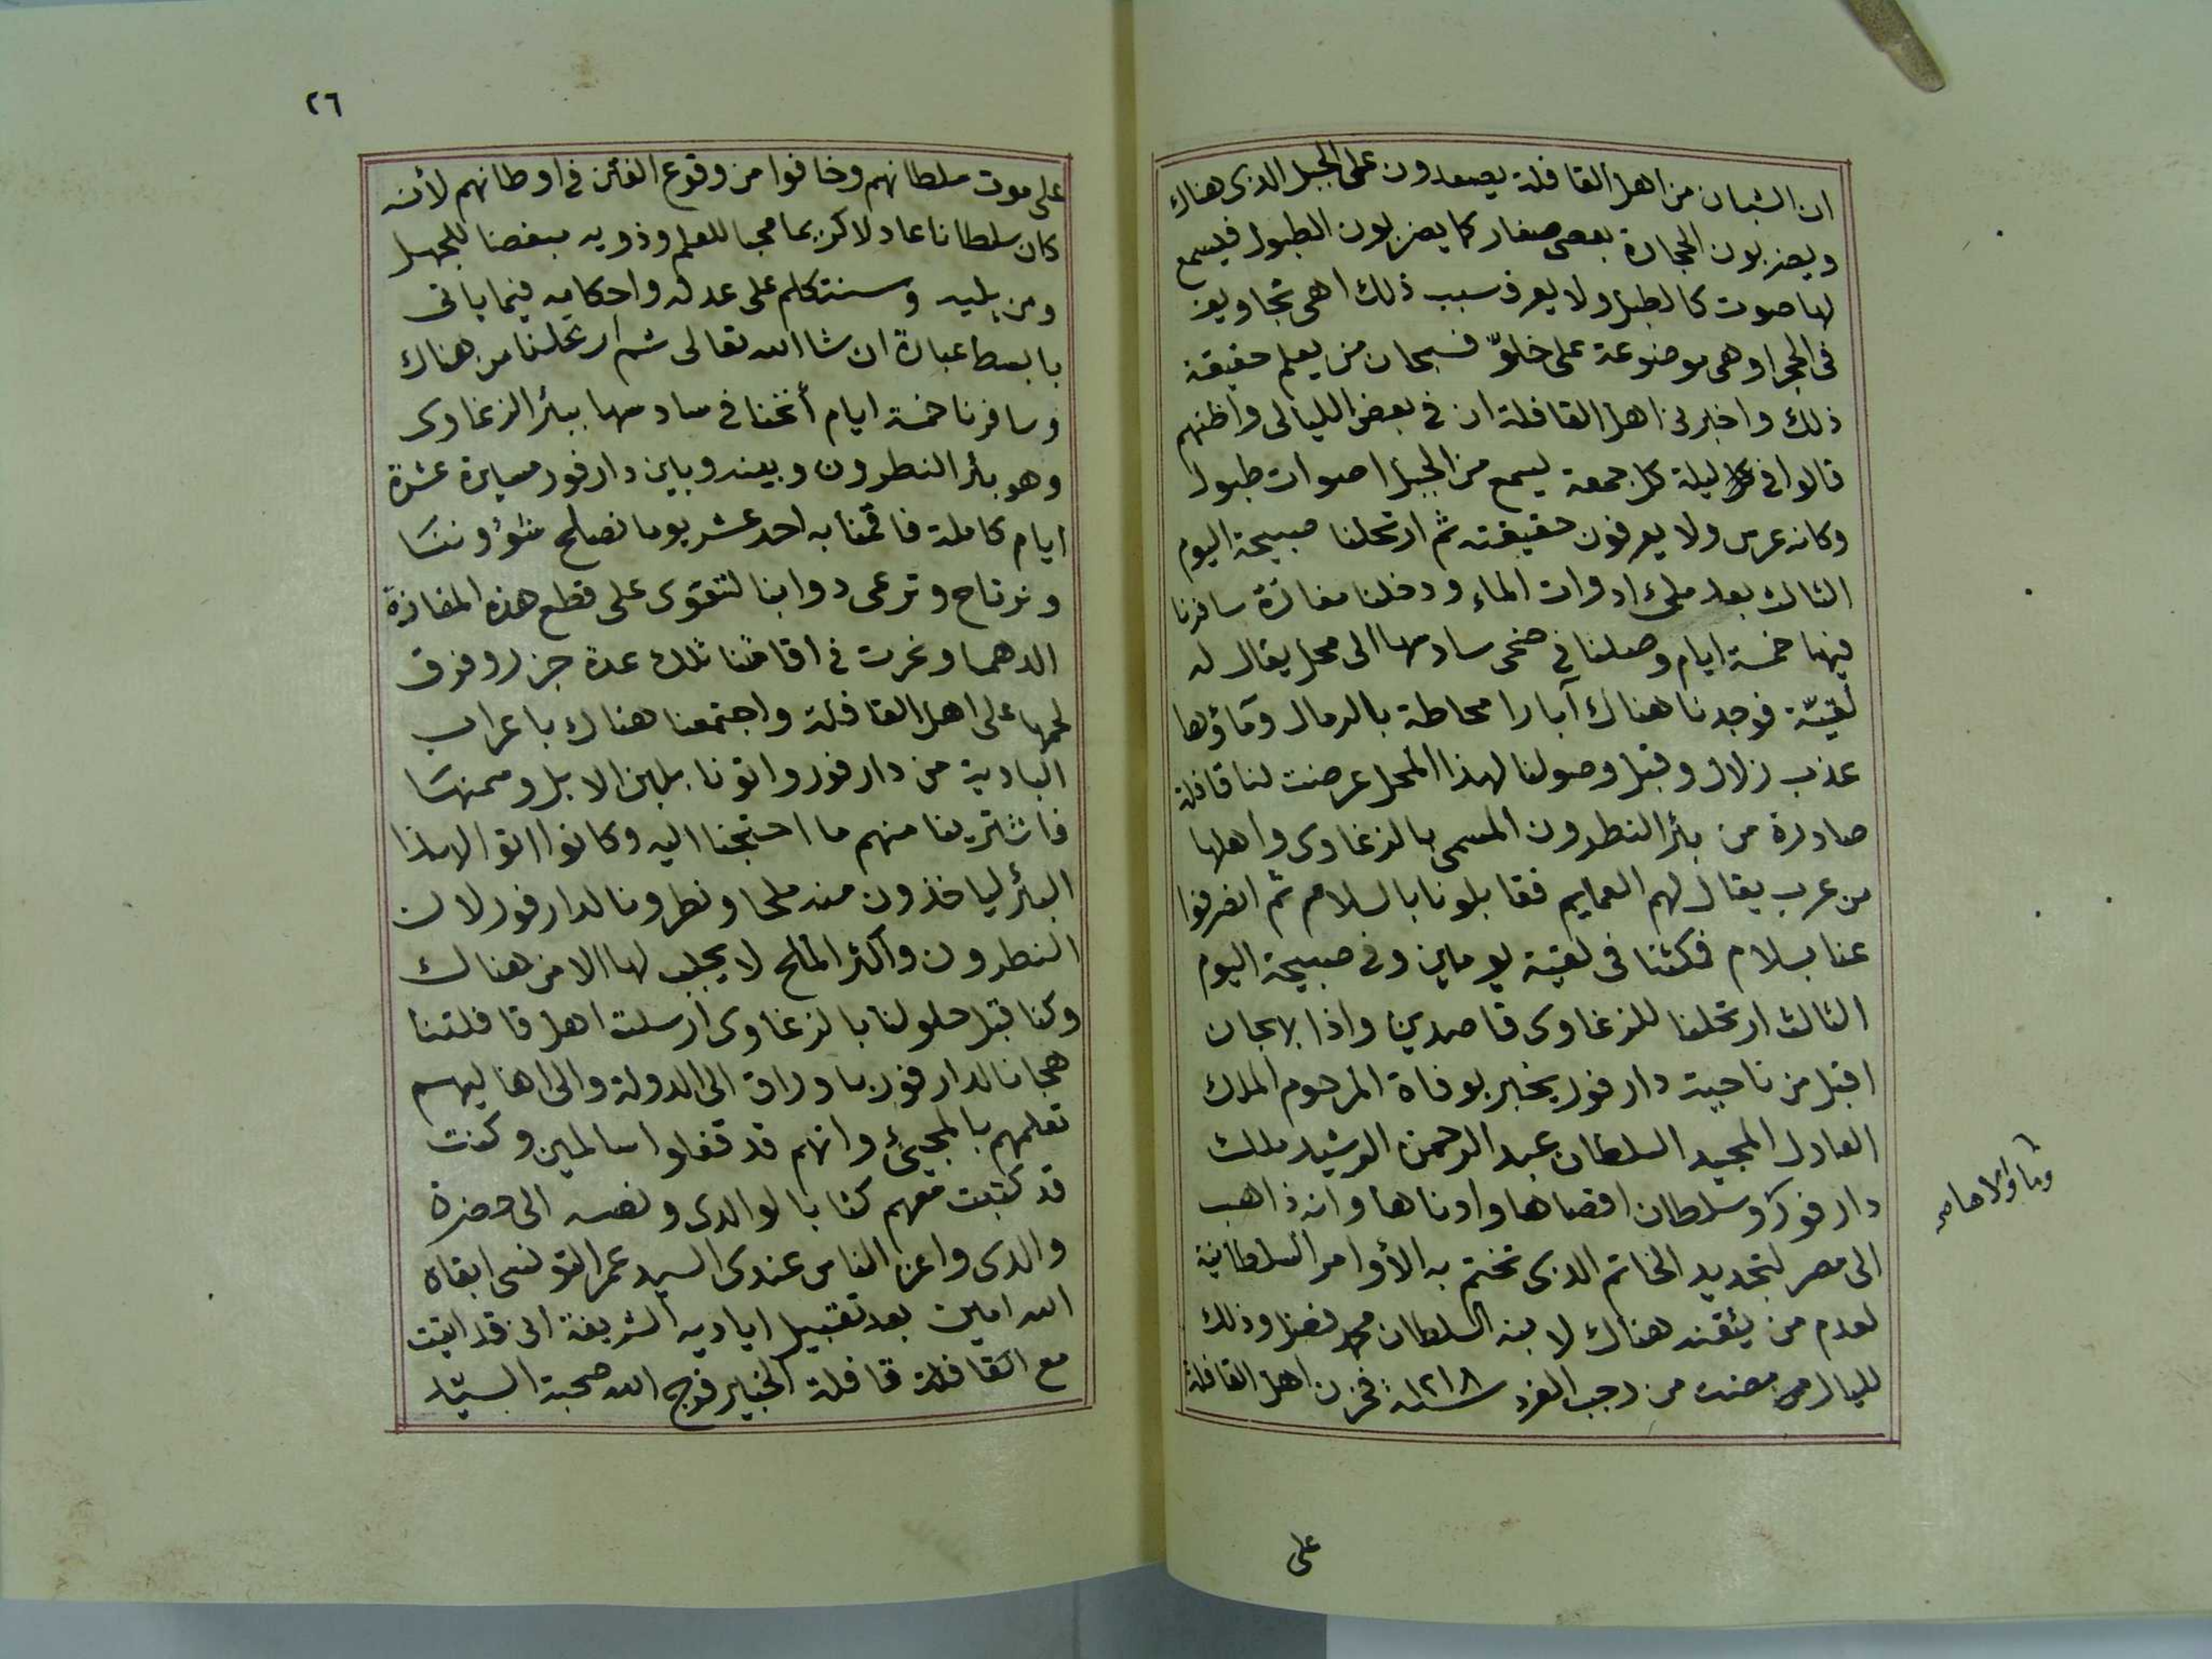 ان الشبان من اهل القافلة يصعدون على الجبل الذى هناك
ويضربون الحجارة بعصى صغار كما يضربون الطبول فيسمع
لها صوت كالطبل ولا يعرف سبب ذلك اهى تجاويف
فى الحجر او هى موضوعة على خلوّ فسبحان من يعلم حقيقة
ذلك واخبرنى اهل القافلة ان فى بعض الليالى واظنهم
قالوا فى ليلة كل جمعة يسمع من الجبل اصوات طبول
وكانه عرس ولا يعرفون حقيقته ثم ارتحلنا صبيحة اليوم
الثالث بعد ملئ ادوات الماء ودخلنا مفازة سافرنا
فيها خمسة ايام وصلنا فى ضحى سادسها الى محل يقال له
لقيّة فوجدنا هناك آبارا محاطة بالرمال وماؤها
عذب زلال وقبل وصولنا لهذا المحل عرضت لنا قافلة
صادرة من بئر النطرون المسمى بالزغاوى واهلها
من عرب يقال لهم العمايم فقابلونا بالسلام ثم انصرفوا
عنا بسلام فمكثنا فى لقية يومين وفى صبيحة اليوم
الثالث ارتحلنا للزغاوى قاصدين واذا بهجان
اقبل من ناحية دارفور يخبر بوفاة المرحوم الملك
العادل المجيد السلطان عبد الرحمن الرشيد ملك
دارفور وسلطان اقصاها وادناها وانه ذاهب
وما والاها صح
الى مصر لتجديد الخاتم الذى تختم به الأوامر السلطانية
لعدم من يتقنه هناك لابنه السلطان محمد فضل وذلك
لليال مضت من رجب الفرد سنة ١٢١٨ فحزن اهل القافلة
على
٢٦
على موت سلطانهم وخافوا من وقوع الفتن فى اوطانهم لأنه
كان سلطانا عادلا كريما محبا للعلم وذويه مبغضا للجهل
ومن يليه وسنتكلم على عدله واحكامه فيما ياتى
بابسط عبارة ان شا الله تعالى ثم ارتحلنا من هناك
وسافرنا خمسة ايام أنخنا فى سادسها ببئر الزغاوى
وهو بئر النطرون وبينه وبين دارفور مسيرة عشرة
ايام كاملة فاقمنا به احد عشر يوما نصلح شؤوننا
ونرتاح وترعى دوابنا لتتقوى على قطع هذه المفازة
الدهما ونحرت فى اقامتنا تلك عدة جزر وفرق
لحمها على اهل القافلة واجتمعنا هناك باعراب
البادية من دارفور واتونا بلبن الابل وسمنها
فاشترينا منهم ما احتجنا اليه وكانوا اتوا لهذا
البئر لياخذون منه ملحا ونطرونا لدارفور لان
النطرون واكثر الملح لا يجلب لها الا من هناك
وكنا قبل حلولنا بالزغاوى ارسلت اهل قافلتنا
هجانا لدارفور باوراق الى الدولة والى اهاليهم
تعلمهم بالمجيئ وانهم قد قفلوا سالمين وكنت
قد كتبت معهم كتابا لوالدى ونصه الى حضرة
والدى واعز الناس عندى السيد عمر التونسى ابقاه
الله امين بعد تقبيل اياديه الشريفة انى قد اتيت
مع القافلة قافلة الخبير فرج الله صحبة السيّد